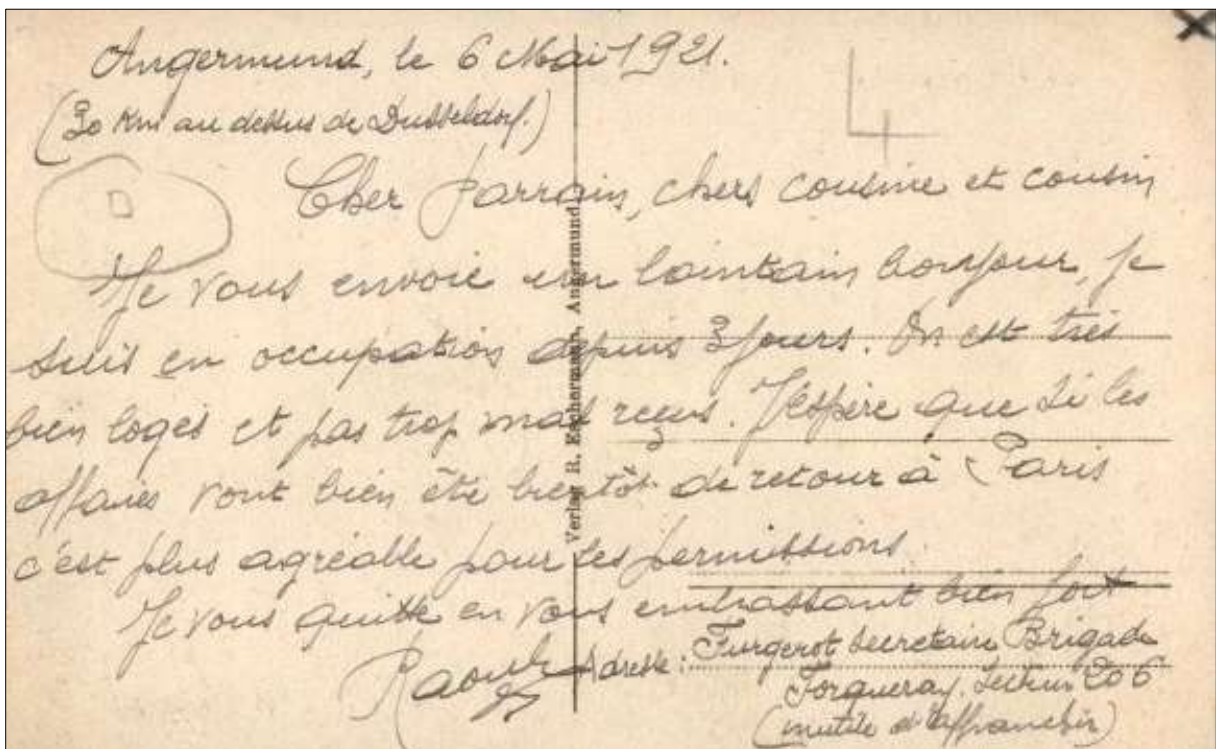 Angermund, le 6 Mai 1921.
(30 Km au dessus de Dusseldorf.)
4
D
Cher Parrain, chers cousine et cousin
Je vous envoie un lointain bonjour, je
suis en occupation depuis 3 jours. On est très
bien logés et pas trop mal reçus. J'espère que si les
affaires vont bien être bientôt de retour à Paris
c'est plus agréable pour les permissions.
Je vous quitte en vous embrassant bien fort
Raoul
Adresse : Furgerot secretaire Brigade
Forqueray. Secteur 206
(inutile d'affranchir)
Verlag R. Angermund